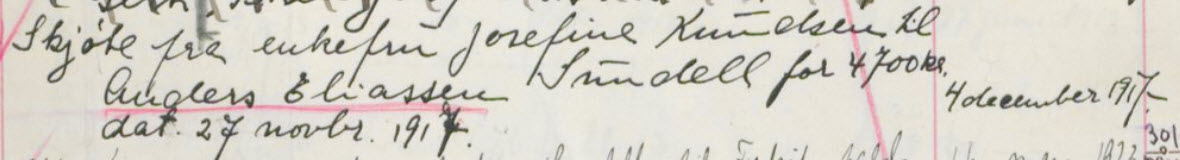 Skjøte fra enkefru Josefine Knudsen til
Anders Eliassen Sundell for 4700 kr.
dat. 27 novbr. 1917. 4 december 1917.
301